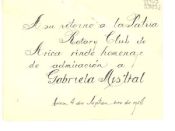 A su retorno a la Patria
Rotary Club de
Arica rinde homenaje
de admiración a
Gabriela Mistral
Arica de de 19